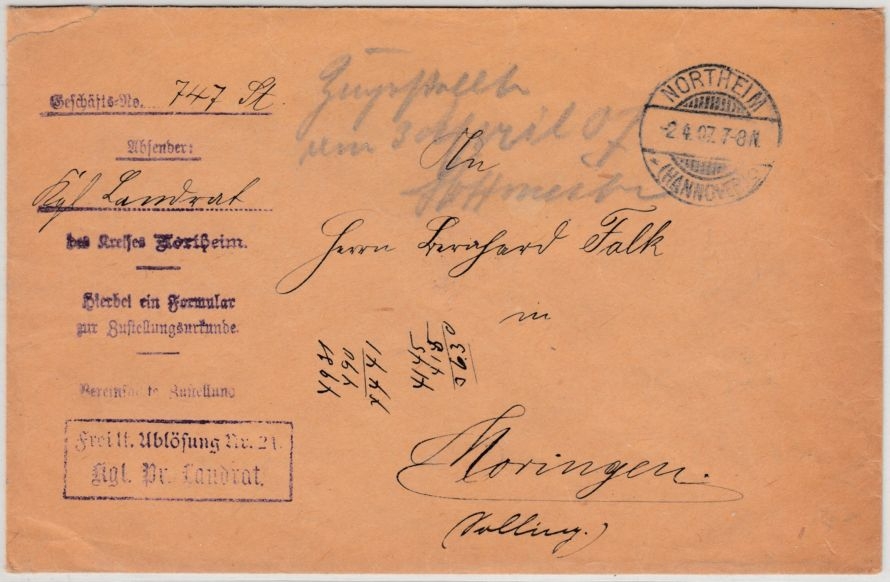 Geschäfts-No. 747 St.
Absender:
Kgl Landrat
des Kreises Northeim.
Hierbei ein Formular
zur Zustellungsurkunde.
Vereinfachte Zustellung
Frei lt. Ablösung Nr. 21.
Kgl. Pr. Landrat.
Zugestellt
am 3 April 07
NORTHEIM
-2.4.07.7-8N.
(HANNOVER)
An
Herrn Bernhard Falk
in
Moringen.
(Solling.)